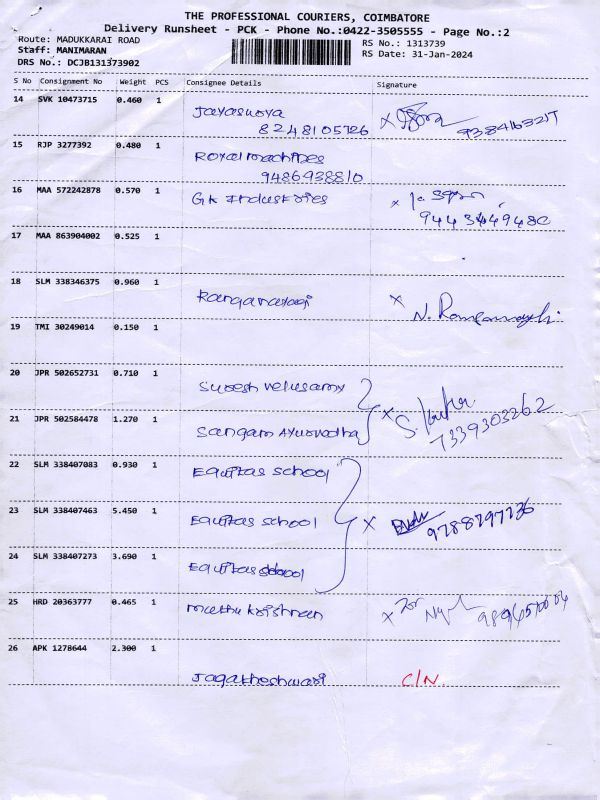 THE PROFESSIONAL COURIERS, COIMBATORE
Delivery Runsheet - PCK - Phone No.:0422-3505555 - Page No.:2
Route: MADUKKARAI ROAD
RS No.: 1313739
Staff: MANIMARAN
RS Date: 31-Jan-2024
DRS No.: DCJB131373902
S No Consignment No Weight PCS Consignee Details Signature
14 SVK 10473715 0.460 1
Jayasurya
8248105726 x 9384163217
15 RJP 3277392 0.480 1
Royal machines
9486938810
16 MAA 572242878 0.570 1
GK Industries x
9443449480
17 MAA 863904002 0.525 1
18 SLM 338346375 0.960 1
Ranganayagi x N.
19 TMI 30249014 0.150 1
20 JPR 502652731 0.710 1
Suresh velusamy
21 JPR 502584478 1.270 1
x S.
Sangam Ayurvedha 7339303262
22 SLM 338407083 0.930 1
Equitas School
23 SLM 338407463 5.450 1
Equitas School x 9788797736
24 SLM 338407273 3.690 1
Equitas School
25 HRD 20363777 0.465 1
muthu krishnan x
26 APK 1278644 2.300 1
Jagatheshwari C/N.